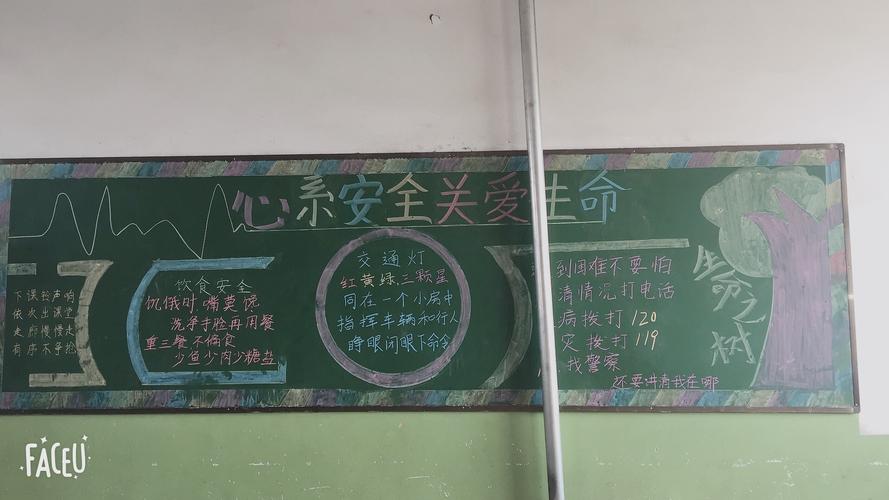 心系安全关爱生命
下课铃声响
依次出课堂
走廊慢慢走
有序不争抢
饮食安全
饥俄时嘴莫馋
洗净手脸再用餐
重三餐不偏食
少鱼少肉少糖盐
交通灯
红黄绿,三颗星
同在一个小房中
指挥车辆和行人
睁眼闭眼下命令
到困难不要怕
清情况打电话
病拨打120
灾拨打119
找警察
还要讲清我在哪
生命之树
FACEU